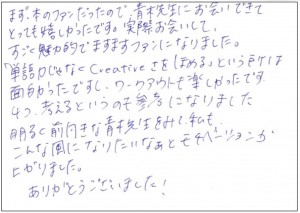 まず、本のファンだったので、青木先生にお会いできて
とっても嬉しかったです。実際お会いして、
すごく魅力的でますますファンになりました。
「単語じゃなくCreativeさをほめる」という所は
面白かったですし、ワークアウトも楽しかったです。
4つ考えるというのも参考になりました
明るく前向きな青木先生をみて私も、
こんな風になりたいなぁとモチベーションが
上がりました。
ありがとうございました!